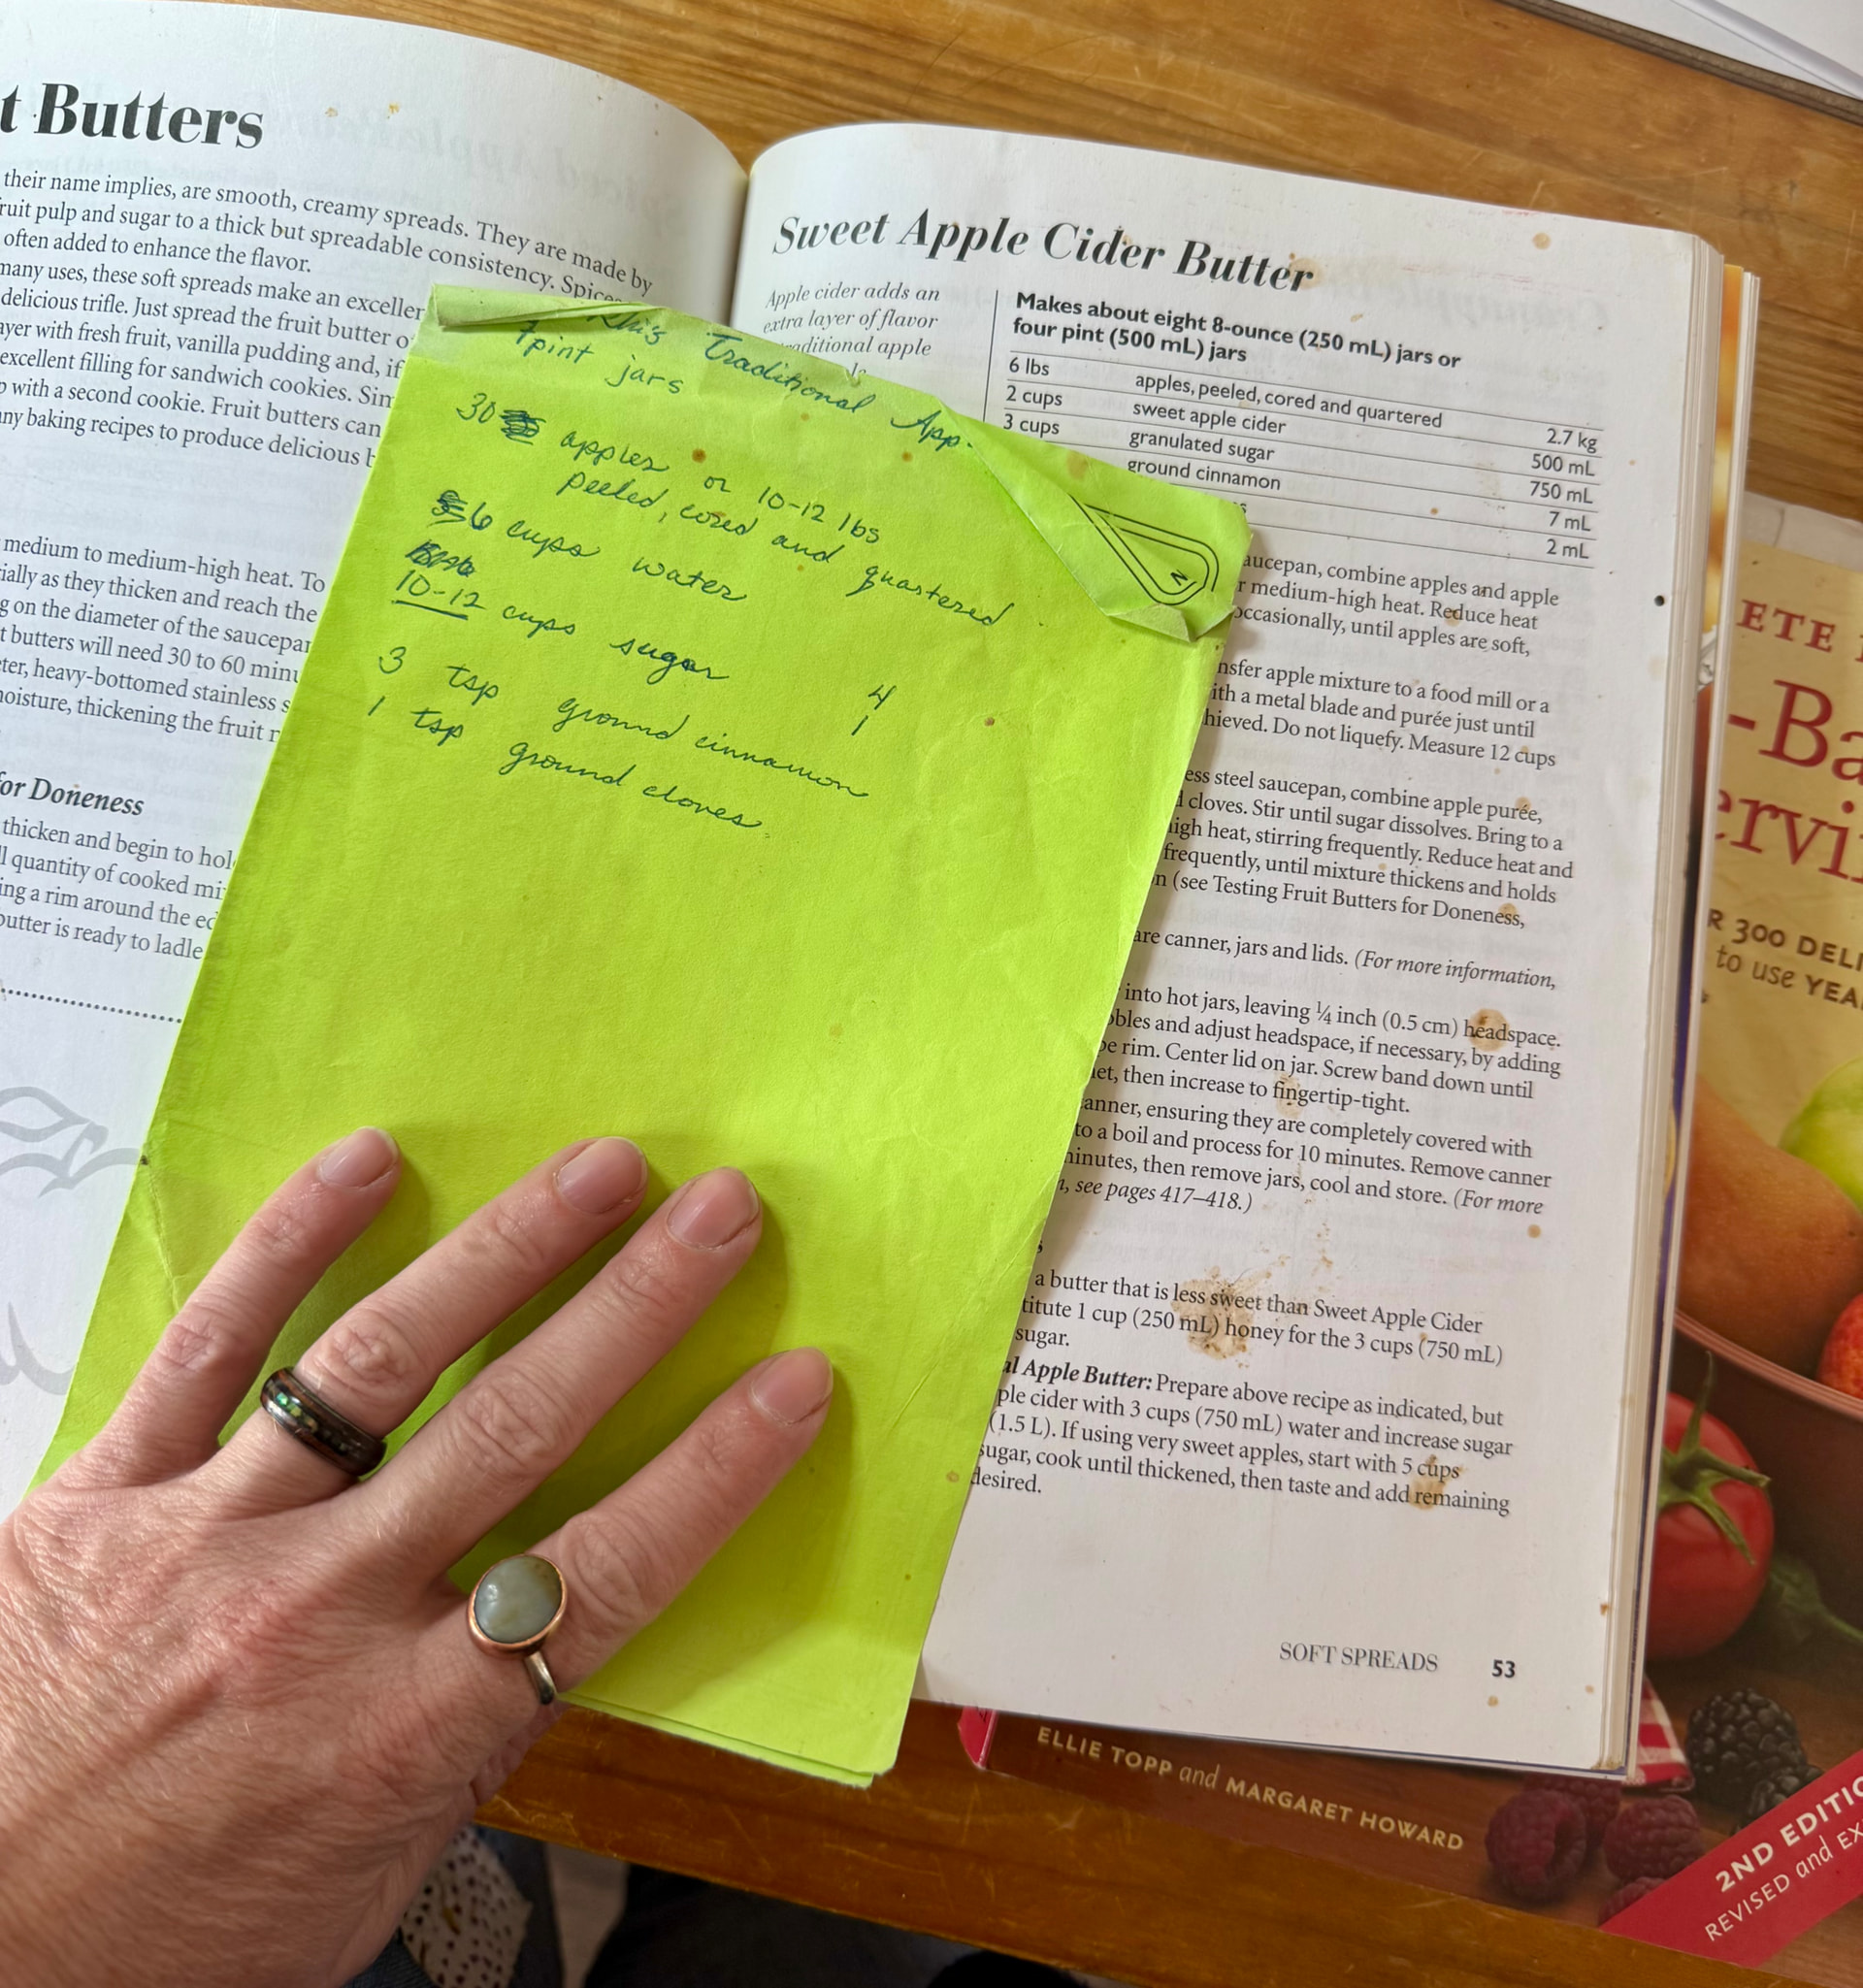 t Butters
their name implies, are smooth, creamy spreads. They are made by
ruit pulp and sugar to a thick but spreadable consistency. Spice
often added to enhance the flavor.
many uses, these soft spreads make an exceller
delicious trifle. Just spread the fruit butter o
ayer with fresh fruit, vanilla pudding and, if
excellent filling for sandwich cookies. Sim
p with a second cookie. Fruit butters can
ny baking recipes to produce delicious b
medium to medium-high heat. To
ially as they thicken and reach the
g on the diameter of the saucepan
t butters will need 30 to 60 minu
ter, heavy-bottomed stainless s
moisture, thickening the fruit r
for Doneness
thicken and begin to hol
ll quantity of cooked mi
ing a rim around the ed
butter is ready to ladle
Traditional App
7 pint jars
30 apples or 10-12 lbs
peeled, cored and quartered
6 cups water
10-12 cups sugar
3 tsp ground cinnamon 4
1 tsp ground cloves 1
Sweet Apple Cider Butter
Apple cider adds an
extra layer of flavor
aditional apple
Makes about eight 8-ounce (250 mL) jars or
four pint (500 mL) jars
6 lbs apples, peeled, cored and quartered 2.7 kg
2 cups sweet apple cider 500 mL
3 cups granulated sugar 750 mL
ground cinnamon 7 mL
2 mL
aucepan, combine apples and apple
r medium-high heat. Reduce heat
occasionally, until apples are soft,
nsfer apple mixture to a food mill or a
ith a metal blade and purée just until
hieved. Do not liquefy. Measure 12 cups
ess steel saucepan, combine apple purée,
d cloves. Stir until sugar dissolves. Bring to a
igh heat, stirring frequently. Reduce heat and
frequently, until mixture thickens and holds
n (see Testing Fruit Butters for Doneness,
are canner, jars and lids. (For more information,
into hot jars, leaving ¼ inch (0.5 cm) headspace.
bbles and adjust headspace, if necessary, by adding
pe rim. Center lid on jar. Screw band down until
et, then increase to fingertip-tight.
canner, ensuring they are completely covered with
to a boil and process for 10 minutes. Remove canner
minutes, then remove jars, cool and store. (For more
n, see pages 417–418.)
s
a butter that is less sweet than Sweet Apple Cider
titute 1 cup (250 mL) honey for the 3 cups (750 mL)
sugar.
al Apple Butter: Prepare above recipe as indicated, but
ple cider with 3 cups (750 mL) water and increase sugar
(1.5 L). If using very sweet apples, start with 5 cups
sugar, cook until thickened, then taste and add remaining
desired.
SOFT SPREADS 53
ETE
-Ba
ervi
R 300 DELI
to use YEA
ELLIE TOPP and MARGARET HOWARD
2ND EDITIO
REVISED and EX